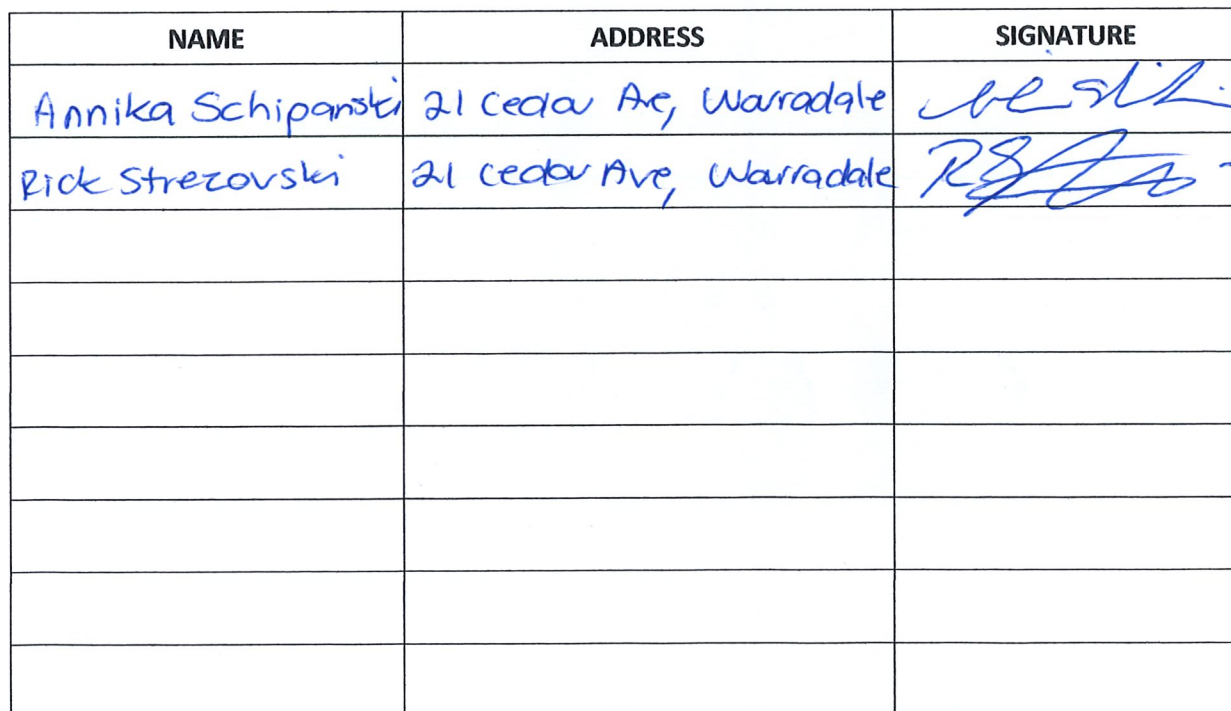 NAME ADDRESS SIGNATURE
Annika Schipanski 21 Cedar Ave, Warradale
Rick Strezovski 21 Cedar Ave, Warradale